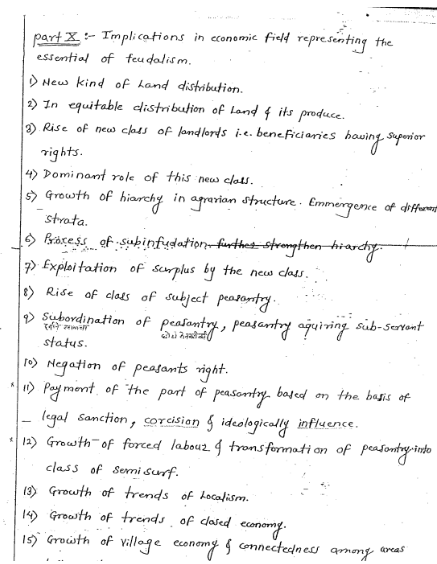 part X :- Implications in economic field representing the
essential of feudalism.
1) New kind of Land distribution.
2) In equitable distribution of Land & its produce.
3) Rise of new class of landlords i.e. beneficiaries having superior
rights.
4) Dominant role of this new class.
5) Growth of hiarchy in agrarian structure. Emmergence of different
strata.
6) Process of subinfudation further strongthen hiarchy.
7) Exploitation of surplus by the new class.
8) Rise of class of subject peasantry.
9) Subordination of peasantry, peasantry aquiring sub-servant
status.
10) Negation of peasants right.
11) Payment of the part of peasantry based on the basis of
legal sanction, corcision & ideologically influence.
12) Growth of forced labour & transformation of peasantry into
class of semisurf.
13) Growth of trends of Localism.
14) Growth of trends of closed economy.
15) Growth of village economy & connectedness among areas